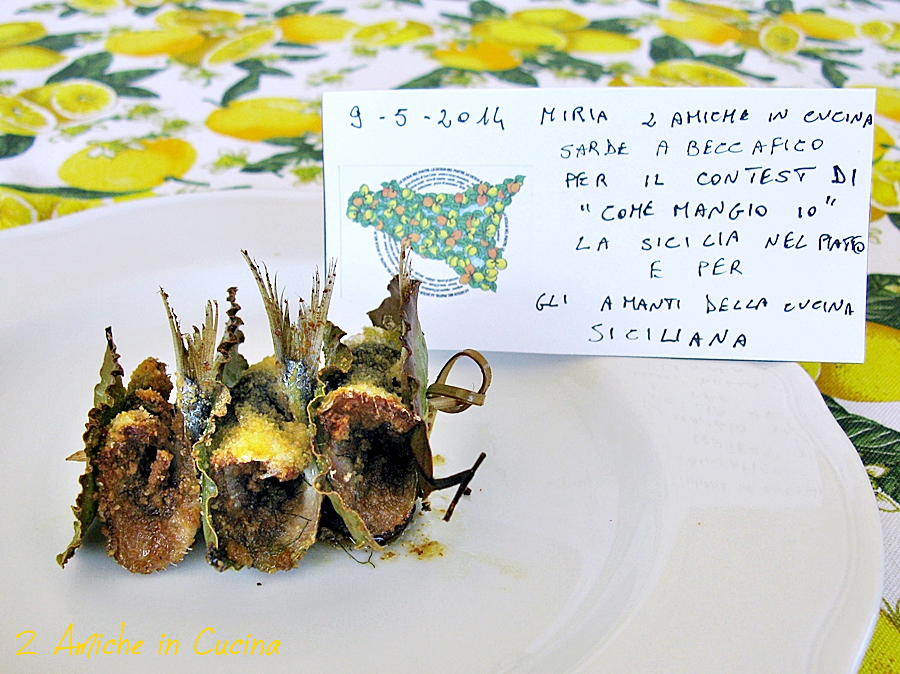 9-5-2014 MIRIA 2 AMICHE IN CUCINA
SARDE A BECCAFICO
PER IL CONTEST DI
"COME MANGIO IO"
LA SICILIA NEL PIATTO
E PER
GLI AMANTI DELLA CUCINA
SICILIANA
2 Amiche in Cucina